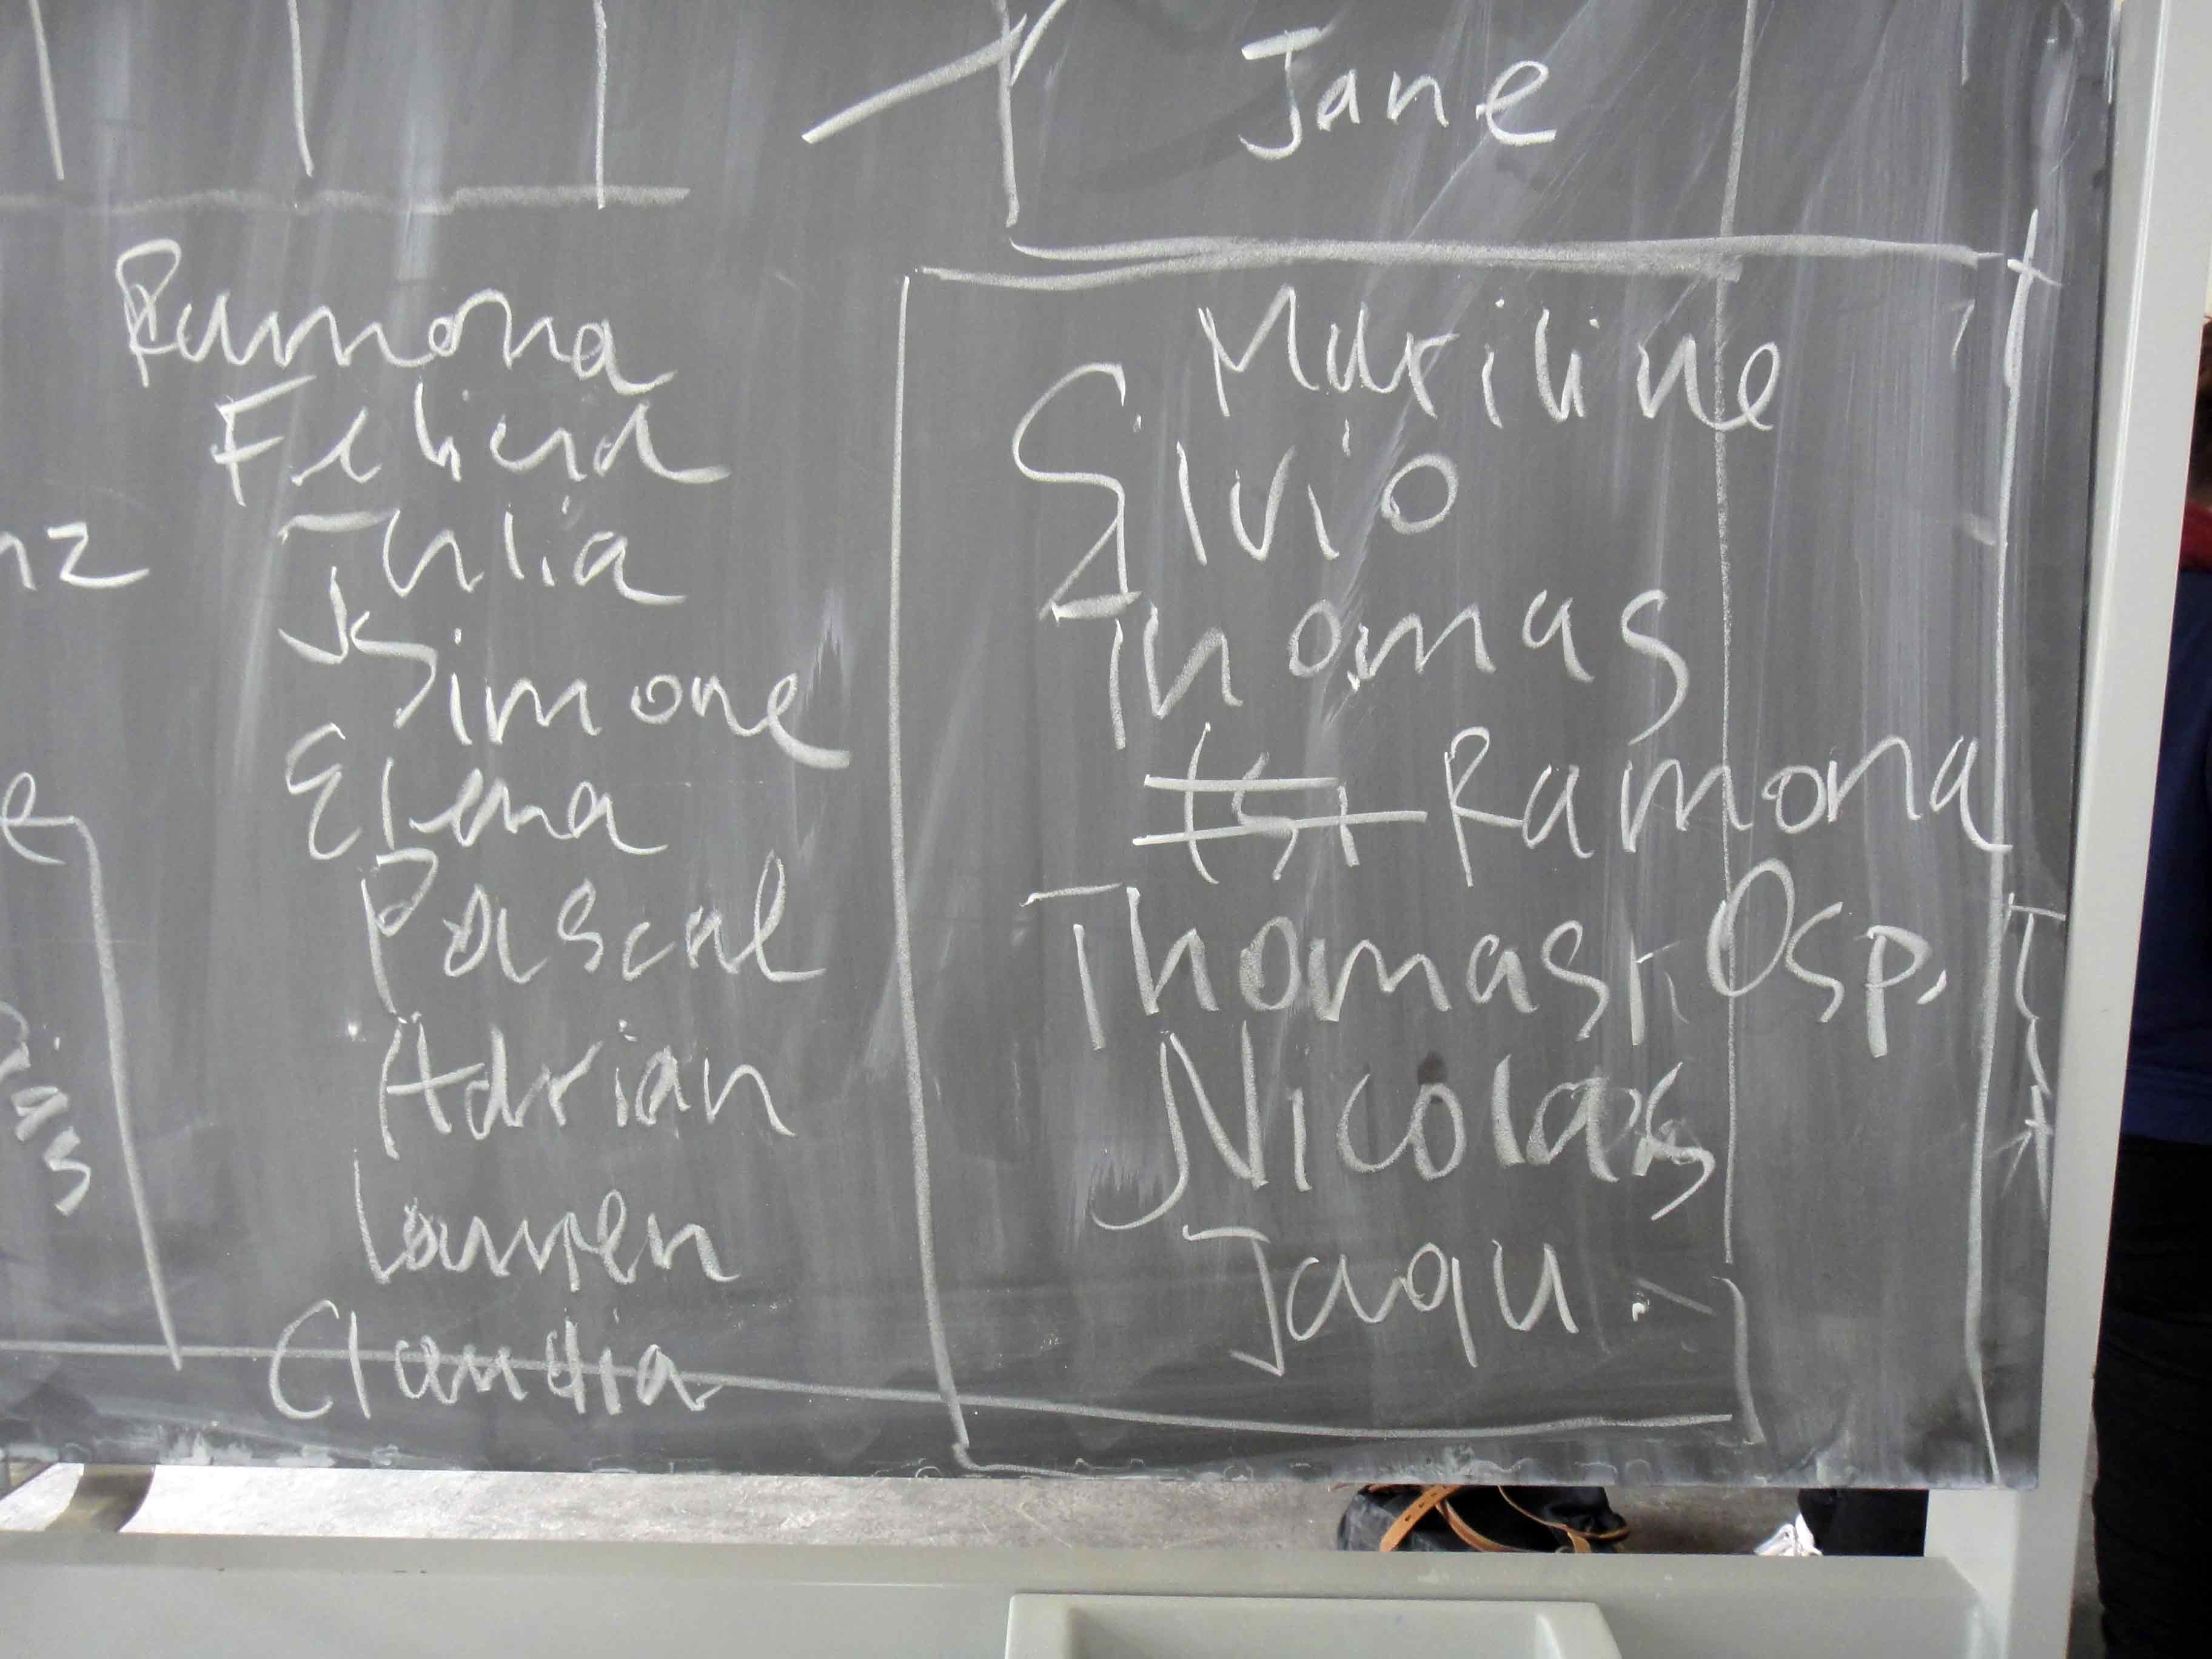 Jane
Ramona
Felicia
Julia
Simone
Elena
Pascal
Adrian
Lauren
Claudia
Mariline
Silvio
Thomas
Ramona
Thomas + Osp.
Nicolas
Jaqu.